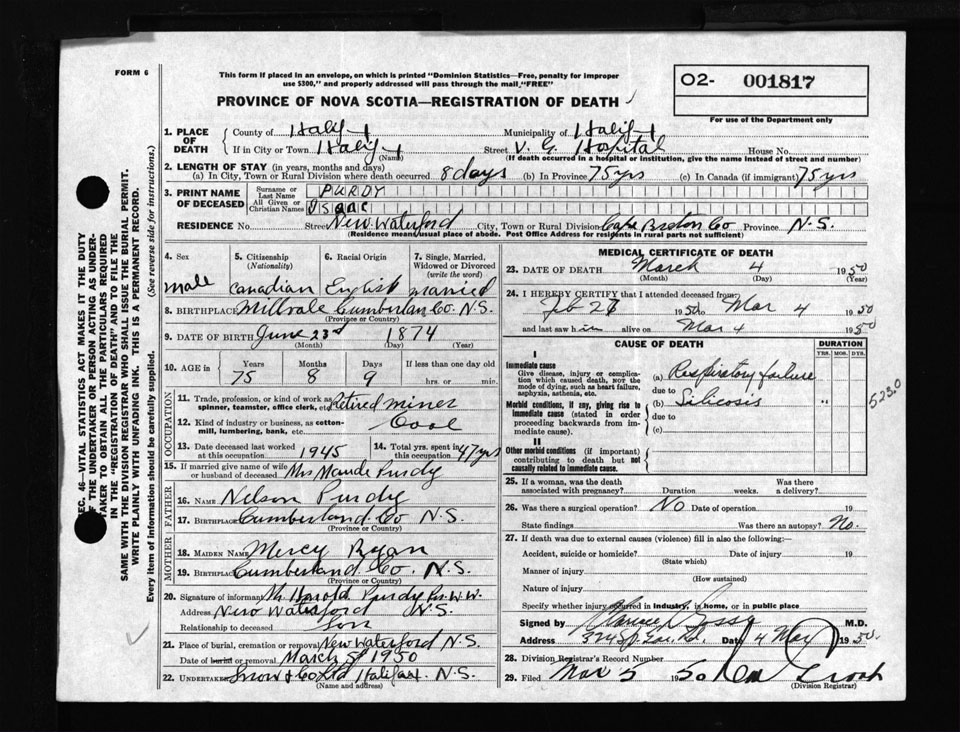 FORM 6
This form if placed in an envelope, on which is printed "Dominion Statistics—Free, penalty for improper
use $300," and properly addressed will pass through the mail "FREE"
PROVINCE OF NOVA SCOTIA—REGISTRATION OF DEATH
O2- 001817
For use of the Department only
1. PLACE OF DEATH
County of Halifx Municipality of Halifx
If in City or Town Halifx Street V. G. Hospital House No.
(Name) (If death occurred in a hospital or institution, give the name instead of street and number)
2. LENGTH OF STAY (in years, months and days)
(a) In City, Town or Rural Division where death occurred 8 days (b) In Province 75 yrs (c) In Canada (if immigrant) 75 yrs
3. PRINT NAME OF DECEASED
Surname or Last Name PURDY
All Given or Christian Names Isaac
RESIDENCE No. Street New Waterford City, Town or Rural Division Cape Breton Co Province N.S.
(Residence means usual place of abode. Post Office Address for residents in rural parts not sufficient)
4. Sex 5. Citizenship (Nationality) 6. Racial Origin 7. Single, Married, Widowed or Divorced (write the word)
male Canadian English married
8. BIRTHPLACE Millvale Cumberlan Co. N.S.
(Province or Country)
9. DATE OF BIRTH June 23rd 1874
(Month) (Day) (Year)
10. AGE in Years Months Days If less than one day old
75 8 9 hrs. or min.
OCCUPATION
11. Trade, profession, or kind of work as
spinner, teamster, office clerk, etc. Retired miner
12. Kind of industry or business, as cotton-
mill, lumbering, bank, etc. Coal
13. Date deceased last worked at this occupation 1945
14. Total yrs. spent in this occupation 47 yrs
15. If married give name of wife or husband of deceased Mrs Maude Purdy
FATHER
16. NAME Nelson Purdy
17. BIRTHPLACE Cumberland Co N.S.
(Province or Country)
MOTHER
18. MAIDEN NAME Mercy Ryan
19. BIRTHPLACE Cumberland Co. N.S.
(Province or Country)
20. Signature of informant Mr Harold Purdy Per W.W.
Address New Waterford N.S.
Relationship to deceased Son
21. Place of burial, cremation or removal New Waterford N.S.
Date of burial or removal March 5 1950
22. UNDERTAKER Snow & Co Ltd Halifax. N.S.
(Name and address)
MEDICAL CERTIFICATE OF DEATH
23. DATE OF DEATH March 4 1950
(Month) (Day) (Year)
24. I HEREBY CERTIFY that I attended deceased from:
1950 to Mar 4 1950
and last saw him alive on Mar 4 1950
CAUSE OF DEATH DURATION
YRS. MOS. DYS.
I
Immediate cause
Give disease, injury or complication which caused death, NOT the mode of dying, such as heart failure, asphyxia, asthenia, etc.
(a) Respiratory failure
due to
Morbid conditions, if any, giving rise to immediate cause (stated in order proceeding backwards from immediate cause).
(b) Silicosis
due to
(c)
5230
II
Other morbid conditions (if important) contributing to death but not causally related to immediate cause.
25. If a woman, was the death associated with pregnancy? Duration weeks. Was there a delivery?
26. Was there a surgical operation? No Date of operation 19
State findings Was there an autopsy? No.
27. If death was due to external causes (violence) fill in also the following:—
Accident, suicide or homicide? Date of injury 19
(State which)
Manner of injury
(How sustained)
Nature of injury
Specify whether injury occurred in industry, in home, or in public place
Signed by Clarence Gosse M.D.
Address Date 4 Mar 1950.
28. Division Registrar's Record Number
29. Filed Mar 5 1950
(Division Registrar)
SEC. 46—VITAL STATISTICS ACT MAKES IT THE DUTY
OF THE UNDERTAKER OR PERSON ACTING AS UNDER-
TAKER TO OBTAIN ALL THE PARTICULARS REQUIRED
IN THE "REGISTRATION OF DEATH" AND TO FILE THE
SAME WITH THE DIVISION REGISTRAR WHO SHALL ISSUE THE BURIAL PERMIT.
WRITE PLAINLY WITH UNFADING INK. THIS IS A PERMANENT RECORD.
Every item of information should be carefully supplied. (See reverse side for instructions.)